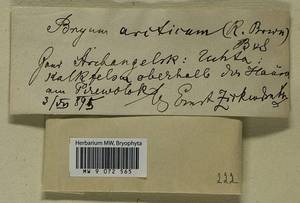 Bryum arcticum (R. Brown)
B & S
Gouv Archangelsk: Uchta;
Kalkfelsen oberhalb des Hauses
am
3/VI 895 leg Ernst
Herbarium MW, Bryophyta
MW 9 072 565
222